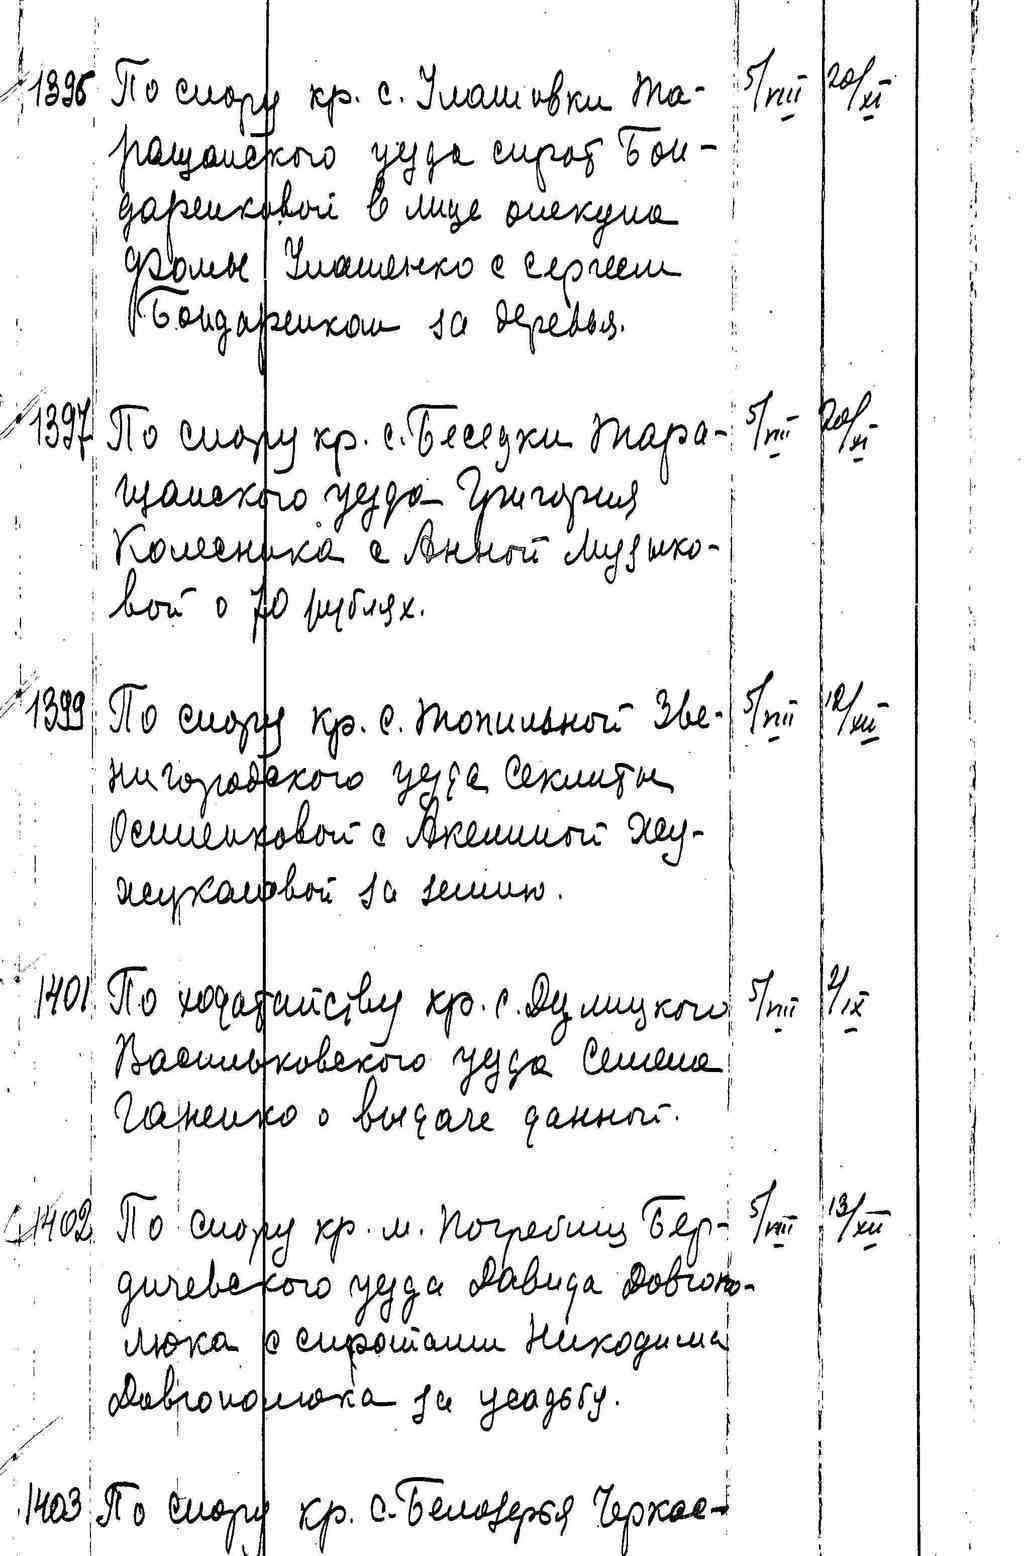 1396 По спору кр. с. Улашовки Та- 5/VIII 20/XI
ращанского уезда сирот Бон-
даренковой в лице опекуна
Фомы Улашенко с Сергеем
Бондаренком за деревья.
1397 По спору кр. с. Беседки Тара- 5/VIII 20/XI
щанского уезда Григория
Колесника с Анной Музыко-
вой о 70 рублях.
1399 По спору кр. с. Топильной Зве- 5/VIII 12/XII
нигородского уезда Секлиты
Осипенковой с Акелиной Жу-
жукаловой за землю.
1401 По ходатайству кр. с. Дулицкого 5/VIII 2/IX
Васильковского уезда Семена
Ганенко о выдаче данной.
1402 По спору кр. м. Погребищ Бер- 5/VIII 13/XII
дичевского уезда Давида Довгопо-
люка с сиротами Никодима
Довгополюка за усадьбу.
1403 По спору кр. с. Белозерья Черкас-